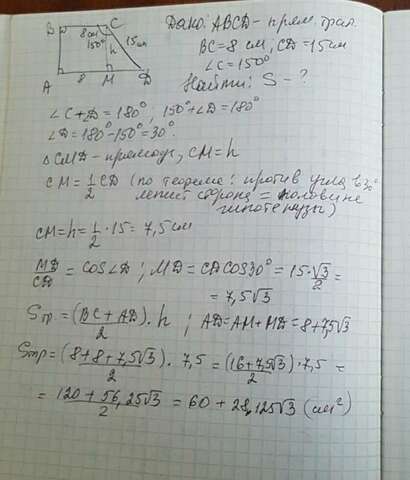 B C
8 см
150° 15 см
h
A 8 M D
Дано: ABCD - прям. трап.
BC = 8 см, CD = 15 см
∠C = 150°
Найти: S - ?
∠C + ∠D = 180°, 150° + ∠D = 180°
∠D = 180° - 150° = 30°.
△CMD - прямоуг, CM = h
CM = 1/2 CD (по теореме: против угла в 30°
лежит сторона = половине
гипотенузы)
CM = h = 1/2 · 15 = 7,5 см
MD/CD = cos∠D ; MD = CD cos30° = 15 · √3/2 =
= 7,5√3
Sтр = (BC + AD)/2 · h ; AD = AM + MD = 8 + 7,5√3
Sтр = (8 + 8 + 7,5√3)/2 · 7,5 = (16 + 7,5√3)/2 · 7,5 =
= 120 + 56,25√3/2 = 60 + 28,125√3 (см²)